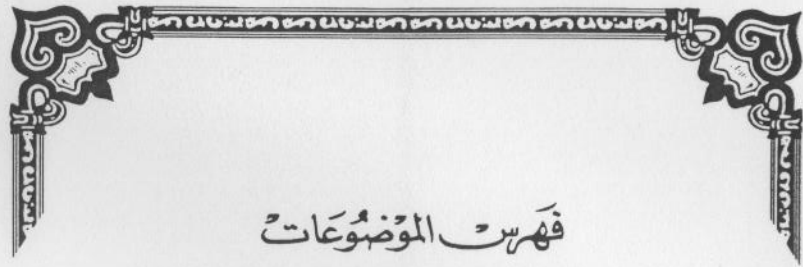 فَهرسْ الموَضوُعَاتْ